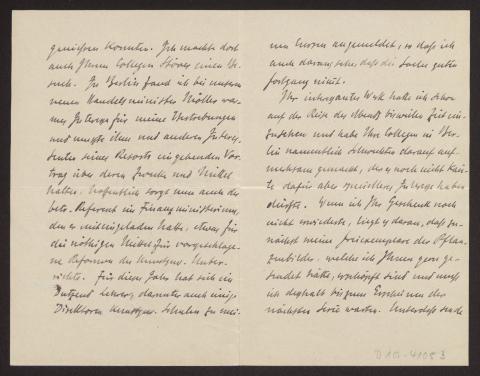 genießen konnten. Ich machte dort
auch Ihrem Collegen Stöver einen Be-
such. In Berlin fand ich bei unserem
neuen Handelsminister Möller war-
mes Interesse für meine Bestrebungen
und mußte ihm und anderen Interes-
senten seines Resorts eingehenden Vor-
trag über deren Zwecke und Mittel
halten. Hoffentlich sorgt nun auch der
betr. Referent im Finanzministerium,
den er mit eingeladen hatte, etwas für
die nöthigen Mittel für vorgeschlage-
ne Reformen des kunstgew. Unter-
richts. Für dieses Jahr hat sich ein
Dutzend Lehrer, darunter auch einige
Direktoren kunstgew. Schulen zu mei-
nen Cursen angemeldet, so daß ich
auch daraus sehe, daß die Sache guten
Fortgang nimmt.
Ihr interessantes Werk hatte ich schon
auf der Reise des Abends bisweilen Zeit ein-
zusehen und habe Ihre Collegen in Ber-
lin namentlich Schwendener darauf auf-
merksam gemacht, der es noch nicht kann-
te dafür aber besonderes Interesse haben
dürfte. Wenn ich Ihr Geschenk noch
nicht erwiderte, liegt es daran, daß zu-
nächst meine Freiexemplare der Pflan-
zenbilder, welche ich Ihnen gern ge-
sendet hätte, erschöpft sind und muß
ich deshalb bis zum Erscheinen der
nächsten Serie warten. Unterdeß sende
D 10.-4105 3